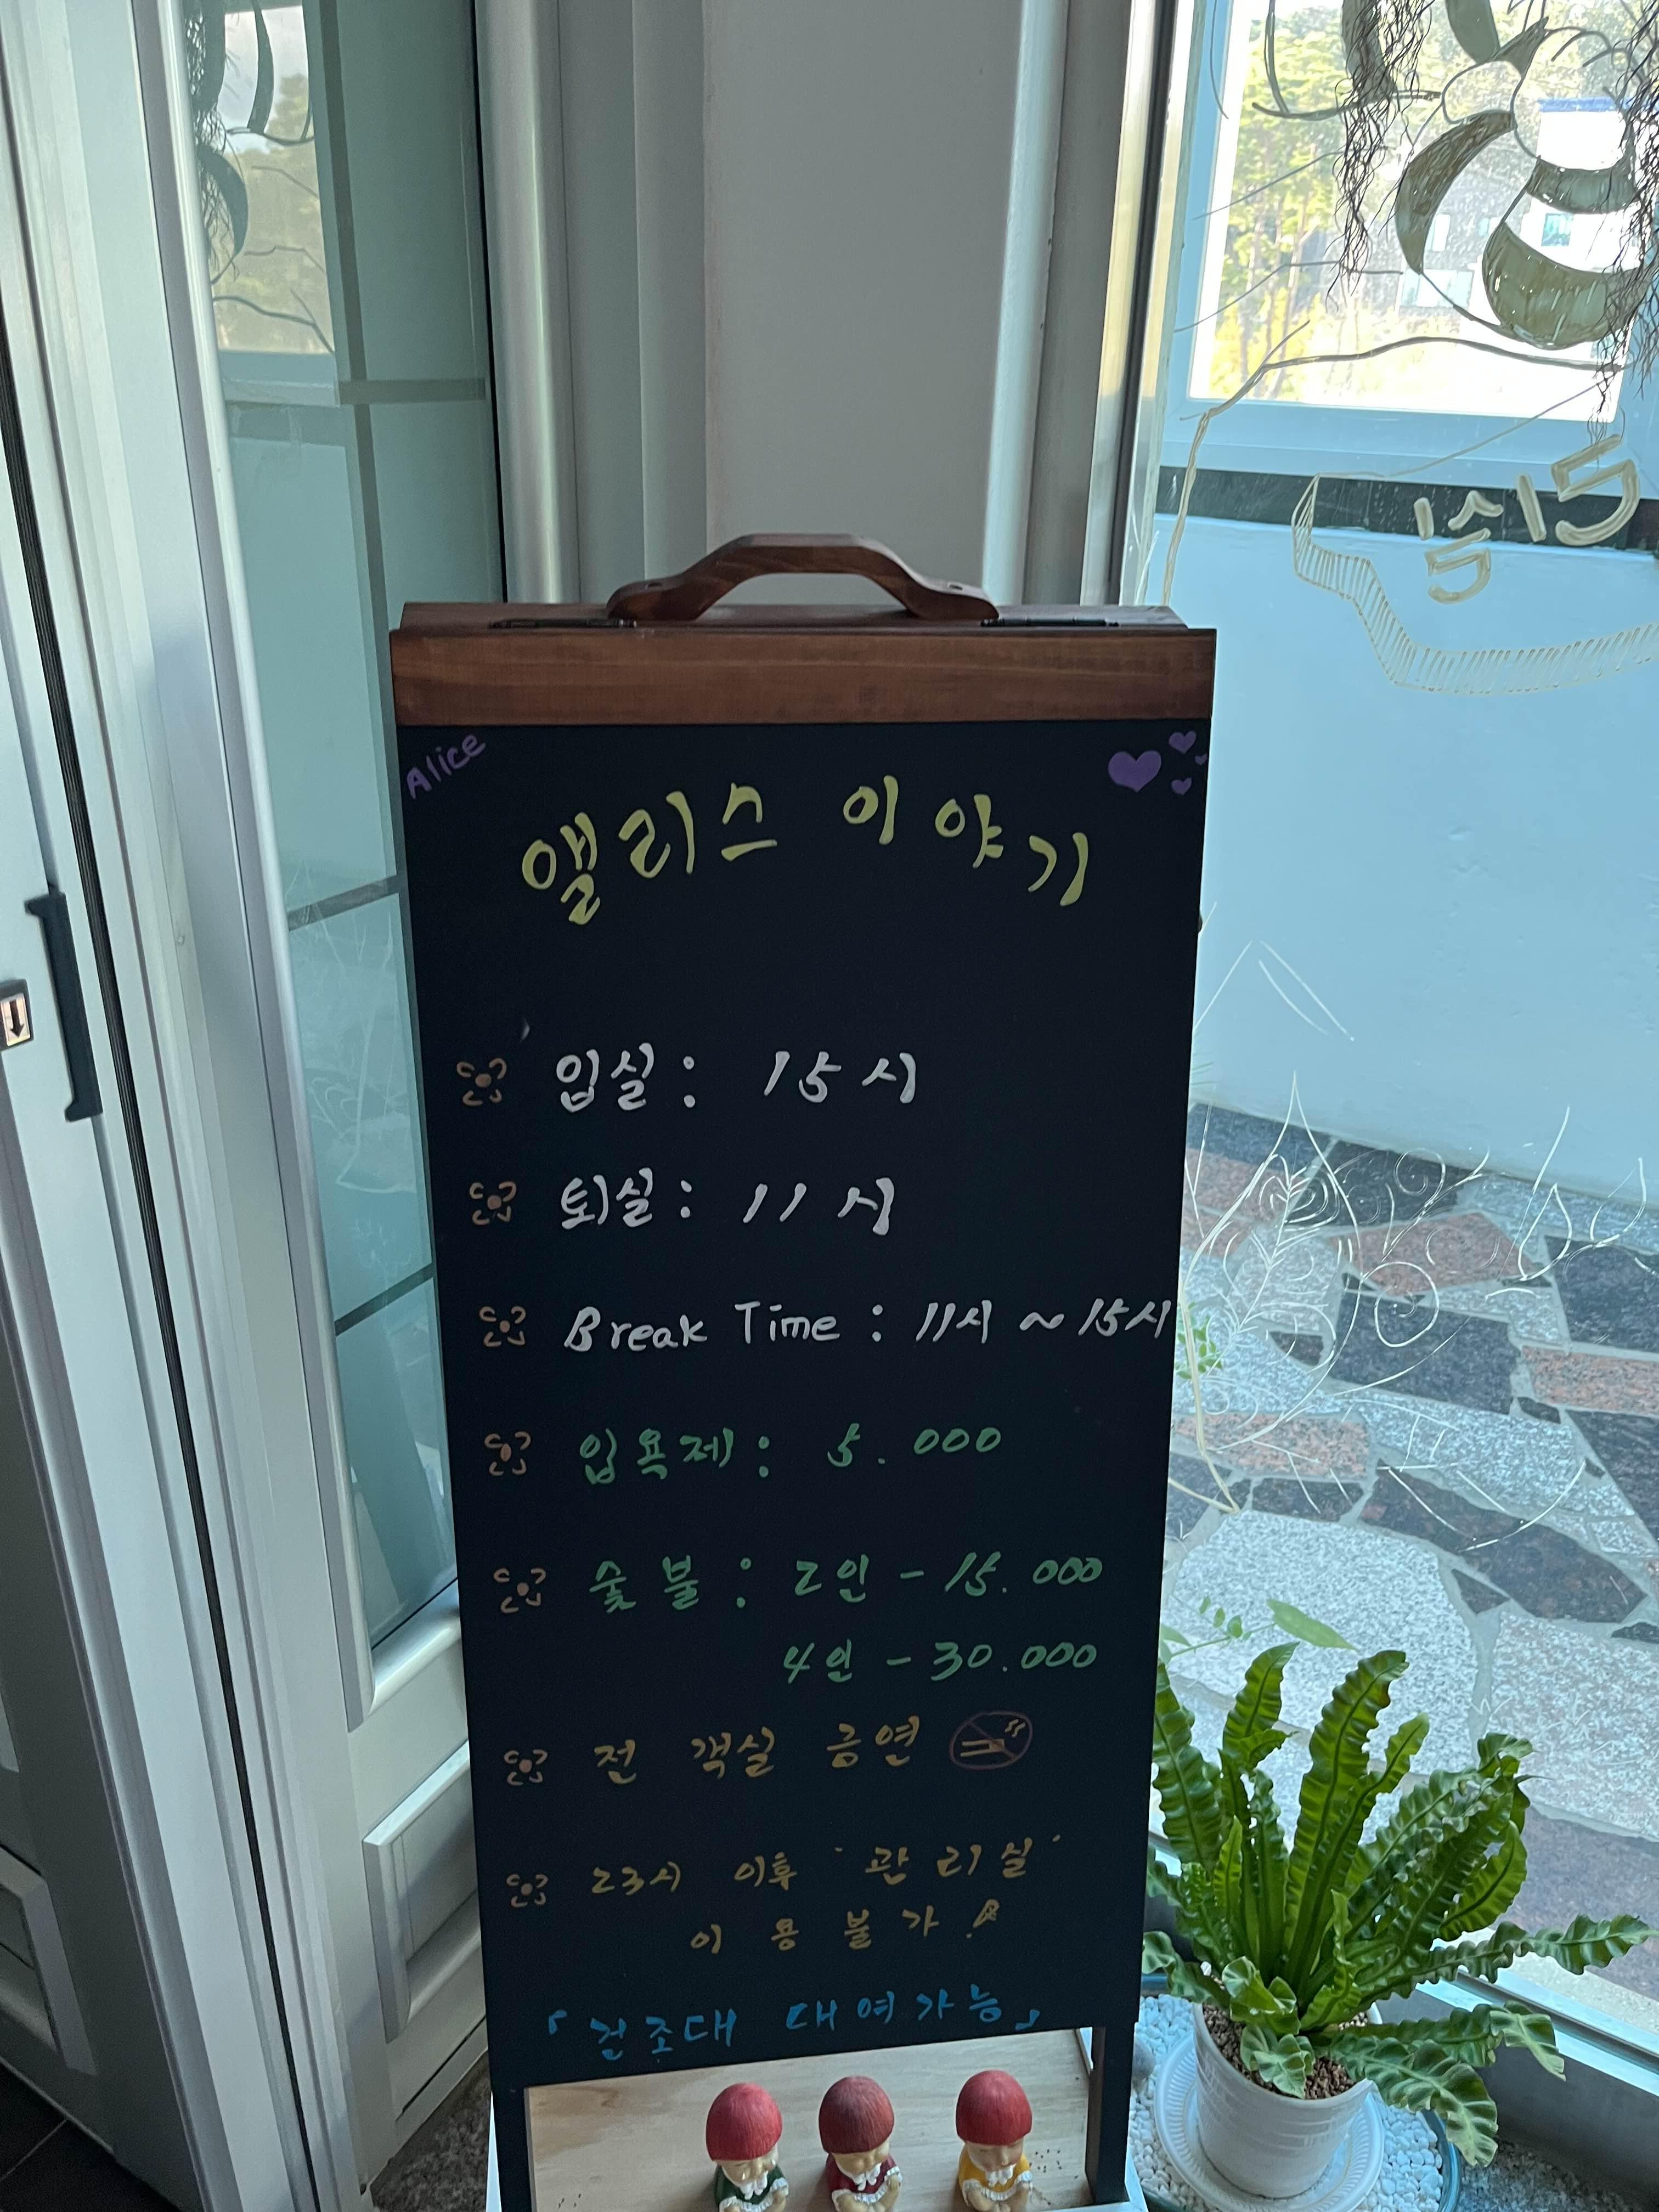 Alice
앨리스 이야기
입실 : 15시
퇴실 : 11시
Break Time : 11시 ~ 15시
입욕제 : 5.000
숯불 : 2인 - 15.000
4인 - 30.000
전 객실 금연
23시 이후 '관리실'
이용불가!
「건조대 대여가능」